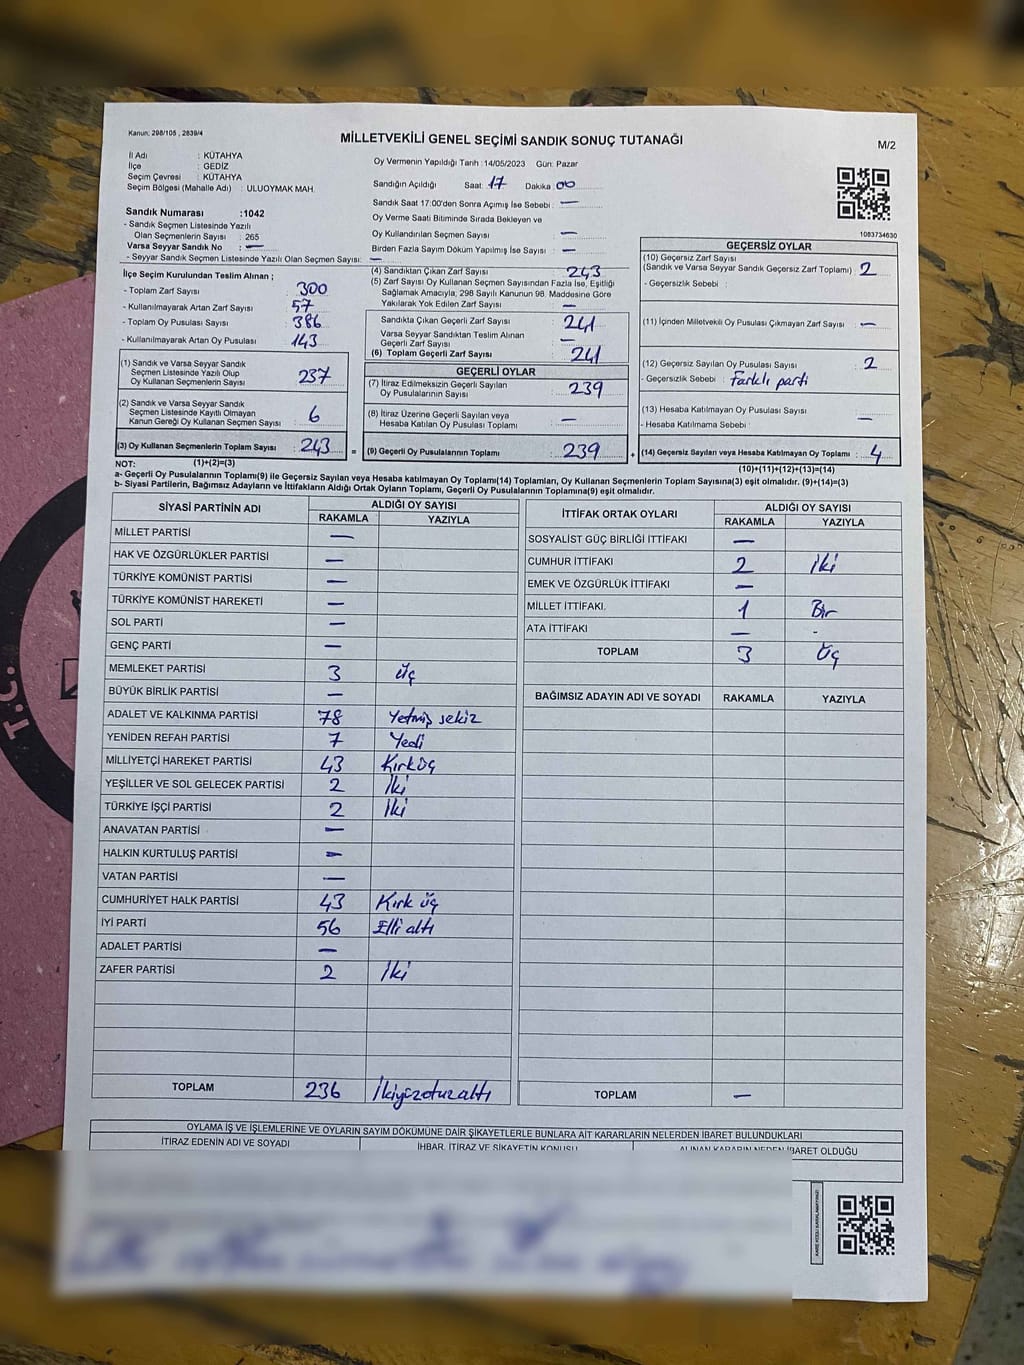 Kanun: 298/105 , 2839/4
MİLLETVEKİLİ GENEL SEÇİMİ SANDIK SONUÇ TUTANAĞI
M/2
İl Adı : KÜTAHYA
İlçe : GEDİZ
Seçim Çevresi : KÜTAHYA
Seçim Bölgesi (Mahalle Adı) : ULUOYMAK MAH.
Sandık Numarası :1042
- Sandık Seçmen Listesinde Yazılı
Olan Seçmenlerin Sayısı : 265
Varsa Seyyar Sandık No : —
- Seyyar Sandık Seçmen Listesinde Yazılı Olan Seçmen Sayısı: —
Oy Vermenin Yapıldığı Tarih :14/05/2023 Gün: Pazar
Sandığın Açıldığı Saat: 17 Dakika: 00
Sandık Saat 17:00'den Sonra Açılmış İse Sebebi : —
Oy Verme Saati Bitiminde Sırada Bekleyen ve
Oy Kullandırılan Seçmen Sayısı : —
Birden Fazla Sayım Döküm Yapılmış İse Sayısı : —
1083734630
İlçe Seçim Kurulundan Teslim Alınan ;
- Toplam Zarf Sayısı : 300
- Kullanılmayarak Artan Zarf Sayısı : 57
- Toplam Oy Pusulası Sayısı : 386
- Kullanılmayarak Artan Oy Pusulası : 143
(1) Sandık ve Varsa Seyyar Sandık
Seçmen Listesinde Yazılı Olup
Oy Kullanan Seçmenlerin Sayısı : 237
(2) Sandık ve Varsa Seyyar Sandık
Seçmen Listesinde Kayıtlı Olmayan
Kanun Gereği Oy Kullanan Seçmen Sayısı : 6
(3) Oy Kullanan Seçmenlerin Toplam Sayısı : 243
(1)+(2)=(3)
(4) Sandıktan Çıkan Zarf Sayısı : 243
(5) Zarf Sayısı Oy Kullanan Seçmen Sayısından Fazla İse, Eşitliği
Sağlamak Amacıyla; 298 Sayılı Kanunun 98. Maddesine Göre
Yakılarak Yok Edilen Zarf Sayısı : —
Sandıkta Çıkan Geçerli Zarf Sayısı : 241
Varsa Seyyar Sandıktan Teslim Alınan
Geçerli Zarf Sayısı : —
(6) Toplam Geçerli Zarf Sayısı : 241
GEÇERLİ OYLAR
(7) İtiraz Edilmeksizin Geçerli Sayılan
Oy Pusulalarının Sayısı : 239
(8) İtiraz Üzerine Geçerli Sayılan veya
Hesaba Katılan Oy Pusulası Toplamı : —
= (9) Geçerli Oy Pusulalarının Toplamı : 239
GEÇERSİZ OYLAR
(10) Geçersiz Zarf Sayısı
(Sandık ve Varsa Seyyar Sandık Geçersiz Zarf Toplamı) : 2
- Geçersizlik Sebebi :
(11) İçinden Milletvekili Oy Pusulası Çıkmayan Zarf Sayısı : —
(12) Geçersiz Sayılan Oy Pusulası Sayısı : 2
- Geçersizlik Sebebi : Farklı parti
(13) Hesaba Katılmayan Oy Pusulası Sayısı : —
- Hesaba Katılmama Sebebi :
+ (14) Geçersiz Sayılan veya Hesaba Katılmayan Oy Toplamı : 4
(10)+(11)+(12)+(13)=(14)
NOT:
a- Geçerli Oy Pusulalarının Toplamı(9) ile Geçersiz Sayılan veya Hesaba Katılmayan Oy Toplamı(14) Toplamları, Oy Kullanan Seçmenlerin Toplam Sayısına(3) eşit olmalıdır. (9)+(14)=(3)
b- Siyasi Partilerin, Bağımsız Adayların ve İttifakların Aldığı Ortak Oyların Toplamı, Geçerli Oy Pusulalarının Toplamına(9) eşit olmalıdır.
SİYASİ PARTİNİN ADI ALDIĞI OY SAYISI
RAKAMLA YAZIYLA
MİLLET PARTİSİ —
HAK VE ÖZGÜRLÜKLER PARTİSİ —
TÜRKİYE KOMÜNİST PARTİSİ —
TÜRKİYE KOMÜNİST HAREKETİ —
SOL PARTİ —
GENÇ PARTİ —
MEMLEKET PARTİSİ 3 Üç
BÜYÜK BİRLİK PARTİSİ —
ADALET VE KALKINMA PARTİSİ 78 Yetmiş sekiz
YENİDEN REFAH PARTİSİ 7 Yedi
MİLLİYETÇİ HAREKET PARTİSİ 43 Kırküç
YEŞİLLER VE SOL GELECEK PARTİSİ 2 İki
TÜRKİYE İŞÇİ PARTİSİ 2 İki
ANAVATAN PARTİSİ —
HALKIN KURTULUŞ PARTİSİ —
VATAN PARTİSİ —
CUMHURİYET HALK PARTİSİ 43 Kırk üç
İYİ PARTİ 56 Elli altı
ADALET PARTİSİ —
ZAFER PARTİSİ 2 İki
TOPLAM 236 İkiyüzotuzaltı
İTTİFAK ORTAK OYLARI ALDIĞI OY SAYISI
RAKAMLA YAZIYLA
SOSYALİST GÜÇ BİRLİĞİ İTTİFAKI —
CUMHUR İTTİFAKI 2 İki
EMEK VE ÖZGÜRLÜK İTTİFAKI —
MİLLET İTTİFAKI 1 Bir
ATA İTTİFAKI — -
TOPLAM 3 Üç
BAĞIMSIZ ADAYIN ADI VE SOYADI RAKAMLA YAZIYLA
TOPLAM —
OYLAMA İŞ VE İŞLEMLERİNE VE OYLARIN SAYIM DÖKÜMÜNE DAİR ŞİKAYETLERLE BUNLARA AİT KARARLARIN NELERDEN İBARET BULUNDUKLARI
İTİRAZ EDENİN ADI VE SOYADI İHBAR, İTİRAZ VE ŞİKAYETİN KONUSU ALINAN KARARIN NEDEN İBARET OLDUĞU
T.C.